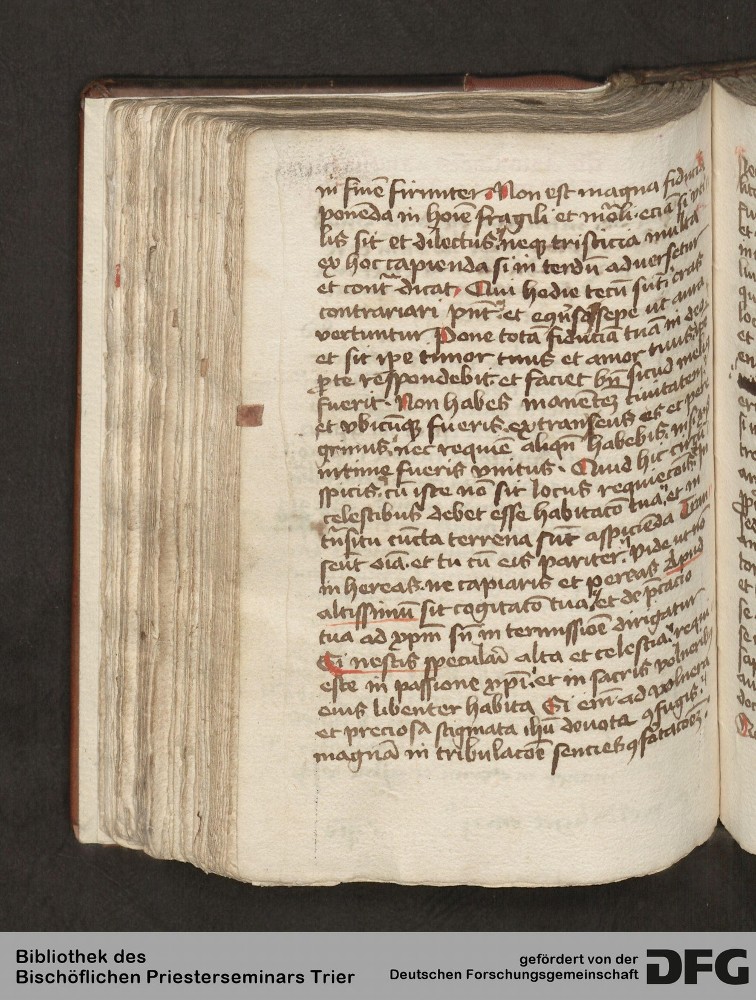 in fine͂ firmiter Non est magna fiducia
pone͂da in ho͂ie͂ fragili et mo͂r͂ali. ecia͂ si vti
lis sit et dilectus. neq͂ tristicia multa
ex hoc capienda si in terdu͂ adversetur
et cont͂ dicat. Qui hodie tecu͂ su͂t. cras
contrariari pn͂t. et eq͂͂so sepe ut aura
vertuntur. Pone tota͂ fiducia͂ tua͂ in deo
et sit ip͂e timor tuus et amor tuus. ip͂e
p͂ te respondebit et faciet bn͂ sicud melius
fuerit. Non habes mane͂tez civitatem
et vbicu͂q͂ fueris. extraneus es et pere
grinus. nec requie͂ aliqn͂ habebis. nisi x͂po
intime fueris vnitus. Quid hic circu͂
spicis. cu͂ iste no͂ sit locus requiecois. in
celestibus debet esse habitaco͂ tua. et in
tn͂situ cu͂cta terrena su͂t aspicienda Tran
seu͂t oi͂a. et tu cu͂ eis pariter. Vide ut no͂
in hereas. ne capiaris et pereas Apud
altissimu͂ sit cogitaco͂ tua. et dep͂cacio
tua ad xp͂m sn͂ in termissio͂e dirigatur
Si nescis speculari alta et celestia. requi
esce in passione xp͂i. et in sacris volneribus
eius libenter habita Si eni͂ ad volnera
et preciosa stigmata ih͂u devote 9fugis.
magna͂ in tribulaco͂e senties 9fortaco͂ez.
Bibliothek des
Bischöflichen Priesterseminars Trier
gefördert von der
Deutschen Forschungsgemeinschaft
DFG